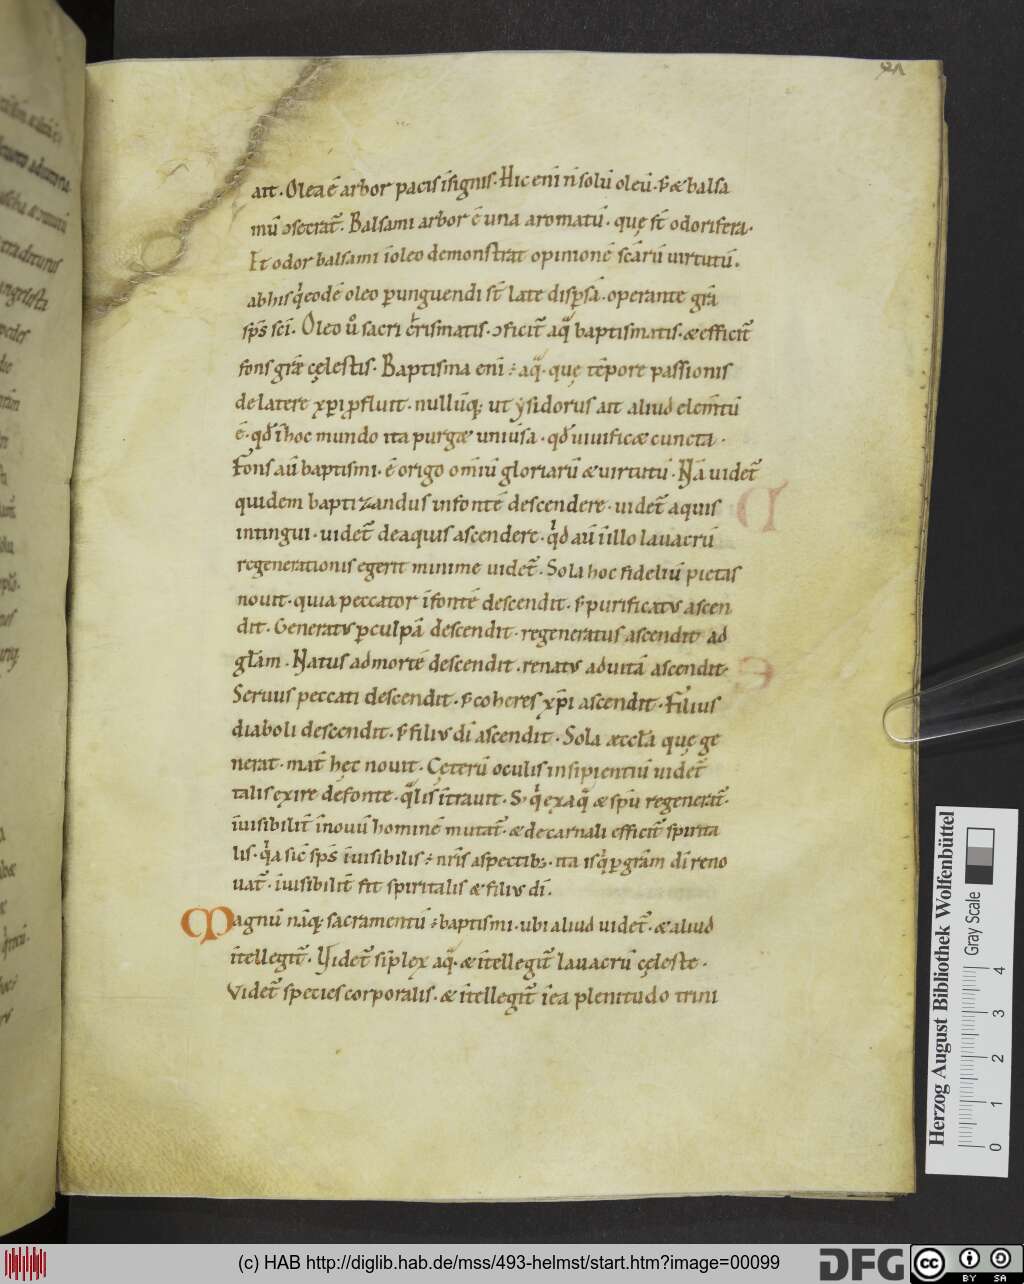 ait. Olea ē arbor pacis īsignis. Hic eni n̄ solū oleū. s; & balsa
mū ↄsecrat̄. Balsami arbor ē una aromatū. quę st̄ odorifera.
Et odor balsami ī oleo demonstrat opinionē scārū uirtutū.
ab his q̇ eodē oleo ꝑunguendi st̄ late disꝑsā. operante grā
sp̄s sc̄i. Oleo ů sacri crismatis. ↄficit̄ aq̄ baptismatis. & efficit̄
fons grǣ cęlestis. Baptisma eni ÷ aq̄. quę tēpore passionis
de latere xp̄i ꝓfluit. nullūq; ut ẏsidorus ait aliud elem̄tū
ē. qđ ī hoc mundo ita purg& uniūsa. qđ uiuific& cuncta.
Fons aū baptismi. ē origo omīū gloriarū & uirtutū. Nā uidet̄
quidem baptizandus in fontē descendere. uidet̄ aquis
intingui. uidet̄ de aquis ascendere. qđ aū ī illo lauacrū
regenerationis egerit minime uidet̄. Sola hoc fideliū pietas
nouit. quia peccator ī fontē descendit. s; purificatꝰ ascen
dit. Generatꝰ ꝑ culpā descendit. regeneratus ascendit ad
gl̄am. Natus ad mortē descendit. renatꝰ ad uitā ascendit.
Seruus peccati descendit. s; coheres xp̄i ascendit. Filius
diaboli descendit. s; filiꝰ dī ascendit. Sola æccl̄a quę ge
nerat. mat̄ hęc nouit. Cęterū oculis insipientiū uidet̄
talis exire de fonte. q̄lis ītrauit. S; q̇ ex aq̄ & spū regenerat̄.
īuisibilit̄ ī nouū hominē mutat̄. & de carnali efficit̄ spirita
lis. q̇a sic̄ sp̄s īuisibilis ÷ nr̄is aspectib;. ita is q̇ ꝑ gr̄am dī reno
uat̄. īuisibilit̄ fit spiritalis & filiꝰ dī.
Magnū nāq; sacramentū ÷ baptismi. ubi aliud uidet̄. & aliud
ītellegit̄. Uidet̄ sīplex aq̄. & ītellegit̄ lauacrū cęleste.
Videt̄ species corporalis. & ītellegit̄ ī ea plenitudo trini
Herzog August Bibliothek Wolfenbüttel
Gray Scale
0 1 2 3 4
(c) HAB http://diglib.hab.de/mss/493-helmst/start.htm?image=00099
DFG
cc BY SA